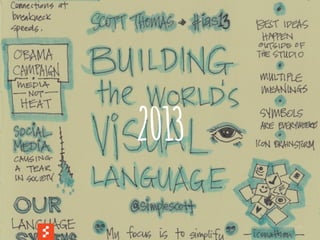 Connections at
breakneck
speeds.
OBAMA
CAMPAIGN
media
NOT
HEAT
SOCIAL
MEDIA
CAUSING
A TEAR
IN SOCIETY
OUR
LANGUAGE
SCOTT THOMAS → #ias13
BUILDING
the WORLD'S
VISUAL
LANGUAGE
2013
@simplescott
"My focus is to simplify"
BEST IDEAS
HAPPEN
OUTSIDE OF
THE STUDIO
MULTIPLE
MEANINGS
SYMBOLS
ARE EVERYWHERE
ICON BRAINSTORM